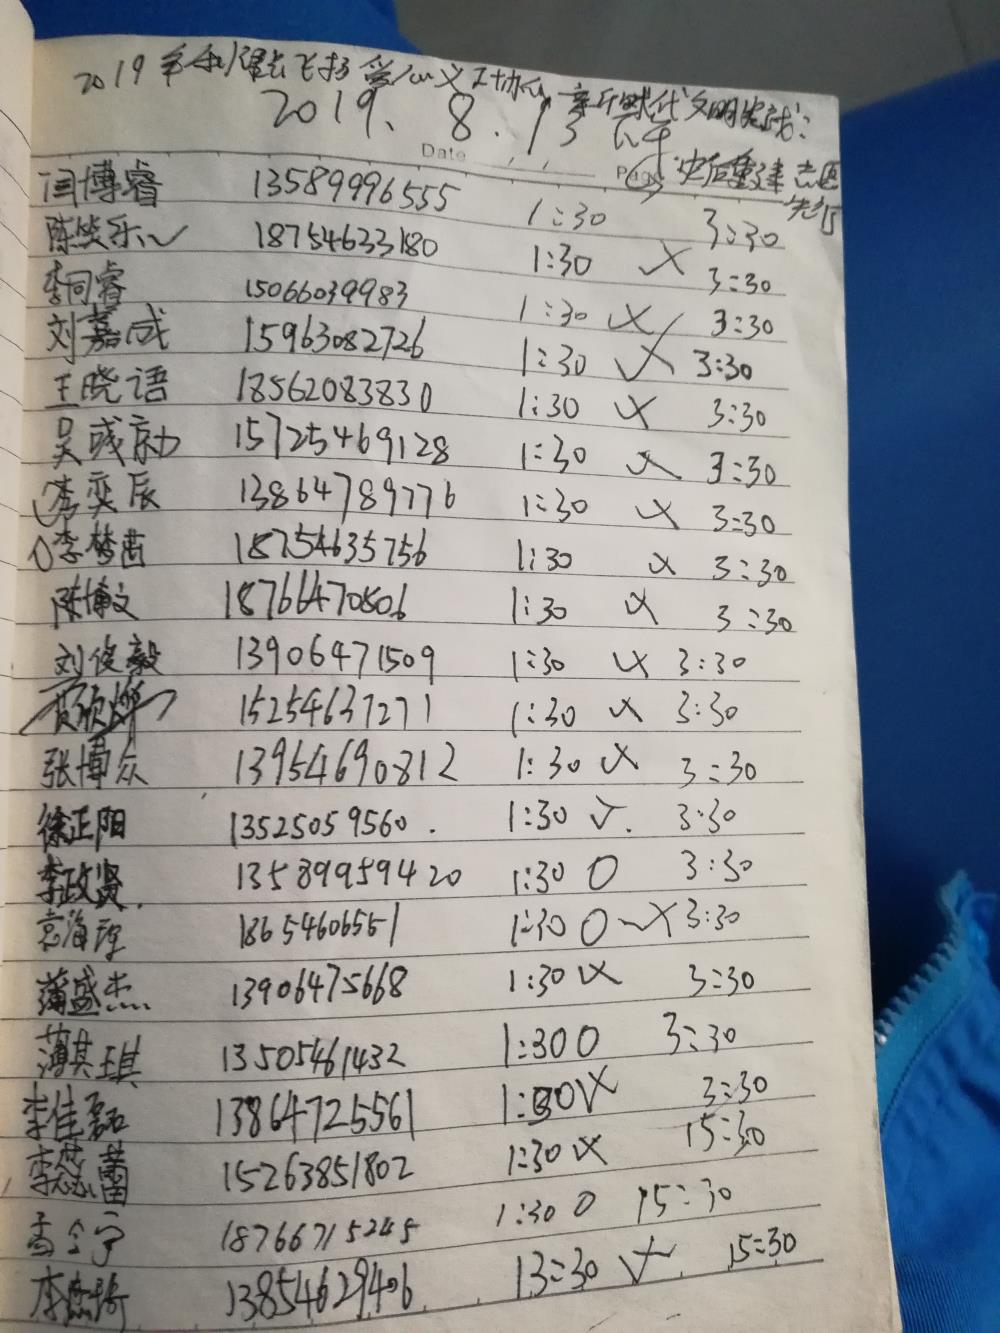 2019年利津县飞扬爱心义工协会 新时代文明实践:
2019. 8. 13 下午 灾后重建 志愿
Date Page 先行
闫博睿 13589996555 1:30 3:30
陈笑乐 18754633180 1:30 3:30
李同睿 15066039983 1:30 3:30
刘嘉成 15963082726 1:30 3:30
王晓语 18562083830 1:30 3:30
吴彧 15725469128 1:30 3:30
李奕辰 13864789776 1:30 3:30
李梦茵 18754635756 1:30 3:30
陈博文 18766470506 1:30 3:30
刘俊毅 13906471509 1:30 3:30
15254637271 1:30 3:30
张博众 13954690812 1:30 3:30
徐正阳 13525059560. 1:30 3:30
李政贤 13589959420 1:30 O 3:30
袁海 18654606551 1:30 O 3:30
蒲盛杰 13906475668 1:30 3:30
薄其琪 13505461432 1:30 O 3:30
李佳磊 13864725561 1:30 3:30
李蕊蕾 15263851802 1:30 15:30
孟令宁 18766715245 1:30 O 15:30
李 13854629406 13:30 15:30